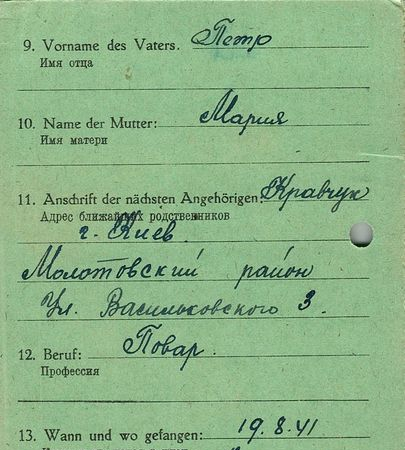 9. Vorname des Vaters. Петр
Имя отца
10. Name der Mutter: Мария
Имя матери
11. Anschrift der nächsten Angehörigen: Кравчук
Адрес ближайших родственников
г. Киев.
Молотовский район
Ул. Васильковского 3.
12. Beruf: Повар.
Профессия
13. Wann und wo gefangen: 19.8.41